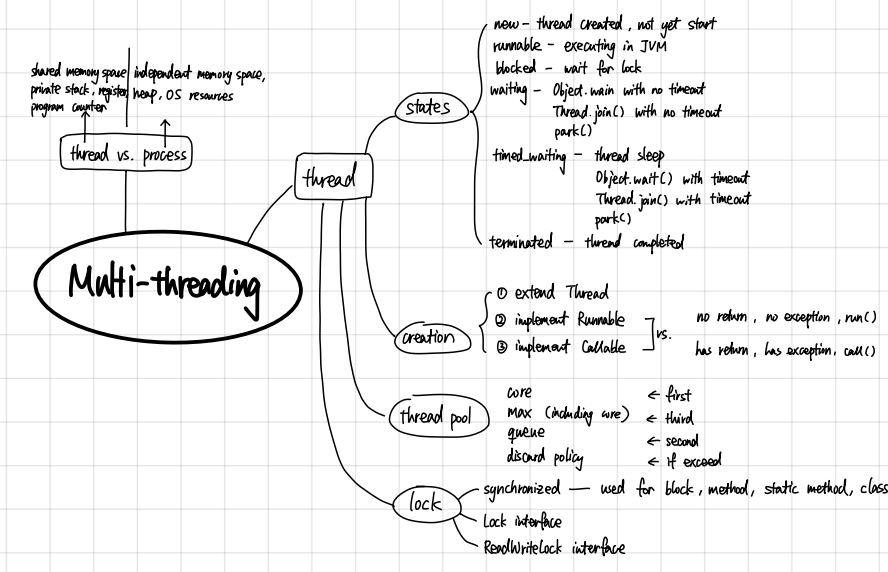 shared memory space
private stack, register
program counter
independent memory space,
heap, OS resources
thread vs. process
Multi-threading
thread
states
new - thread created, not yet start
runnable - executing in JVM
blocked - wait for lock
waiting - Object.wain with no timeout
Thread.join() with no timeout
park()
timed_waiting - thread sleep
Object.wait() with timeout
Thread.join() with timeout
park()
terminated - thread completed
creation
① extend Thread
② implement Runnable
③ implement Callable
vs.
no return, no exception, run()
has return, has exception, call()
thread pool
core ← first
max (including core) ← third
queue ← second
discard policy ← if exceed
lock
synchronized — used for block, method, static method, class
Lock interface
ReadWriteLock interface